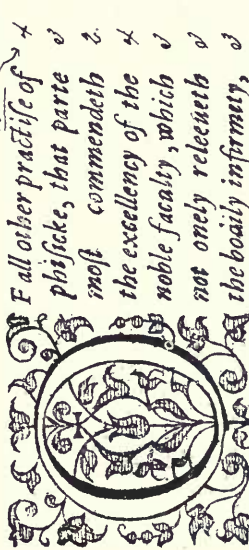 OF all other practiſe of 4
phiſicke, that parte 3
moſt commendeth 2.
the excellency of the 4
noble faculty, which 3
not onely releeueth 3
the bodily infirmety, 3